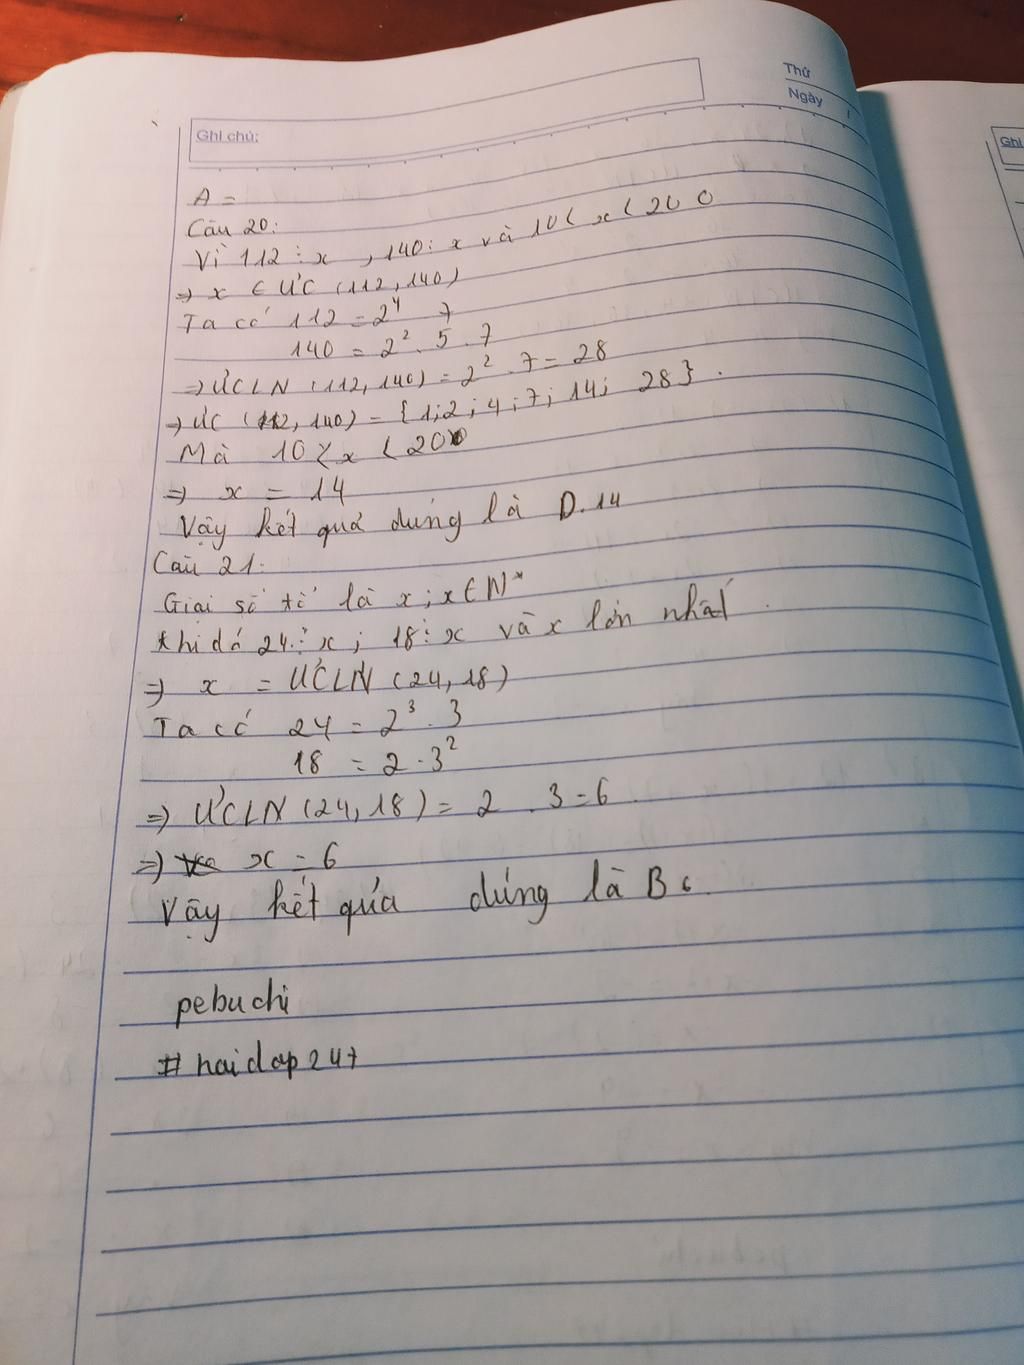 Thứ
Ngày /
Ghi chú:
Ghi
A =
Câu 20:
Vì 112 ⋮ x , 140 ⋮ x và 10 < x < 200
⇒ x ∈ ƯC (112, 140)
Ta có 112 = 2⁴ 7
140 = 2² . 5 . 7
⇒ ƯCLN (112, 140) = 2² . 7 = 28
⇒ ƯC (112, 140) = {1; 2 ; 4 ; 7; 14; 28} .
Mà 10 < x < 20
⇒ x = 14
Vậy kết quả đúng là D. 14
Câu 21:
Gọi số tổ là x ; x ∈ N*
Khi đó 24 ⋮ x ; 18 ⋮ x và x lớn nhất .
⇒ x = ƯCLN (24, 18)
Ta có 24 = 2³ . 3
18 = 2 . 3²
⇒ ƯCLN (24, 18) = 2 . 3 = 6
⇒ x = 6
Vậy kết quả đúng là B 6.
pebuchi
# hoidap 247